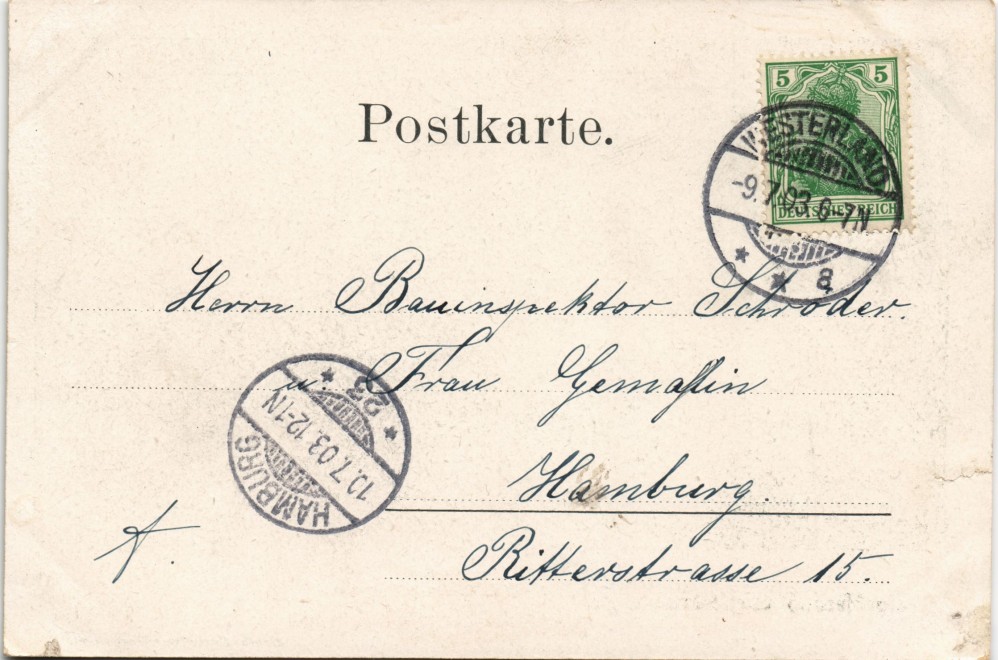 Postkarte.
5 5
DEUTSCHES REICH
WESTERLAND
-9.7.03.6-7N
* * a
Herrn Bauinspektor Schröder.
u. Frau Gemahlin
Hamburg.
Ritterstrasse 15.
HAMBURG
10.7.03.12-1N
* 23 *